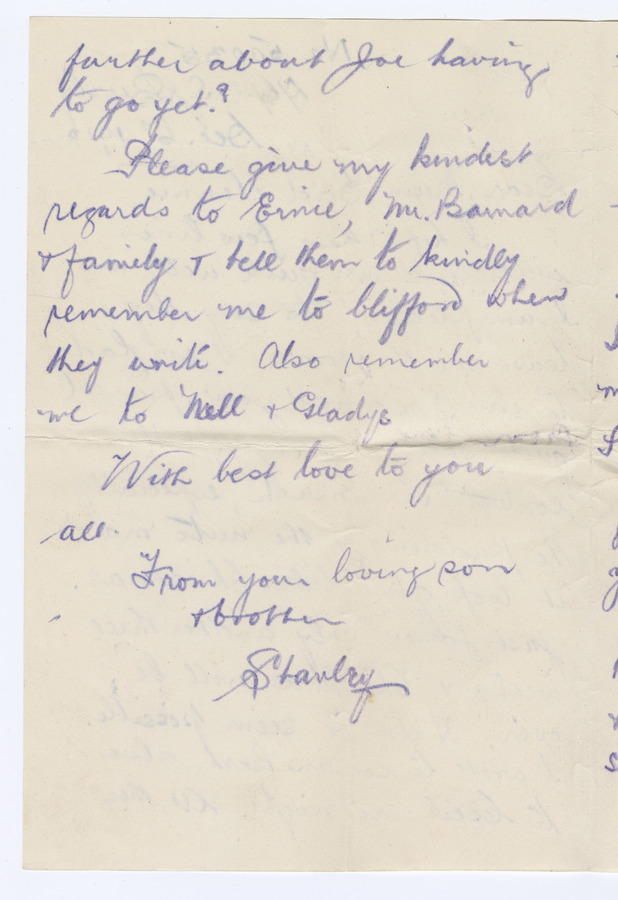 further about Joe having
to go yet.?
Please give my kindest
regards to Ernie, Mr. Barnard
& family & tell them to kindly
remember me to Clifford when
they write. Also remember
me to Nell & Gladys
With best love to you
all.
From your loving son
& brother
Stanley